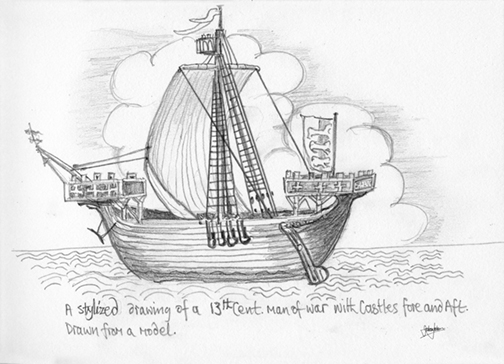 A stylized drawing of a 13th Cent. Man of war with Castles fore and Aft.
Drawn from a Model.